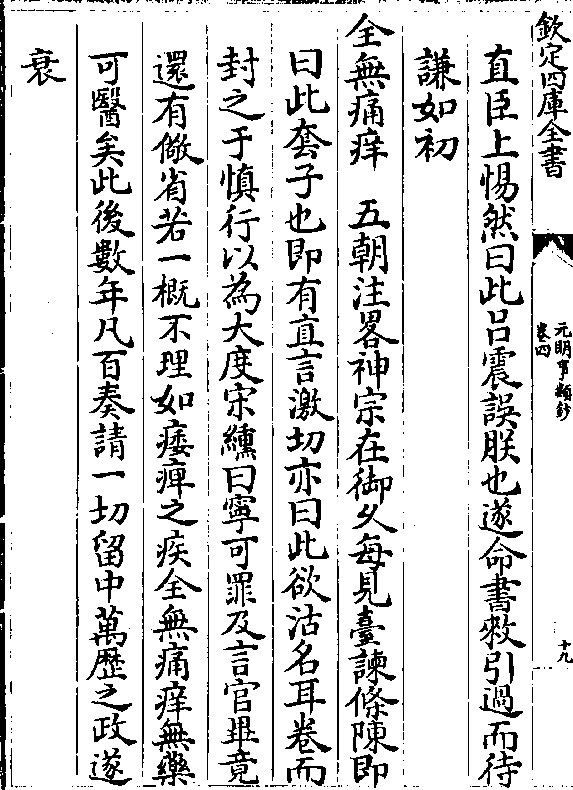 欽定四庫全書
元明事類鈔
卷四
十九
直臣上惕然曰此呂震誤朕也遂命書敕引過而待
謙如初
全無痛痒　五朝注畧神宗在御乆每見臺諫條陳即
曰此套子也即有直言激切亦曰此欲沽名耳卷而
封之于慎行以為大度宋纁曰寧可罪及言官畢竟
還有儆省若一概不理如痿痺之疾全無痛痒無藥
可醫矣此後數年凡百奏請一切留中萬歷之政遂
衰